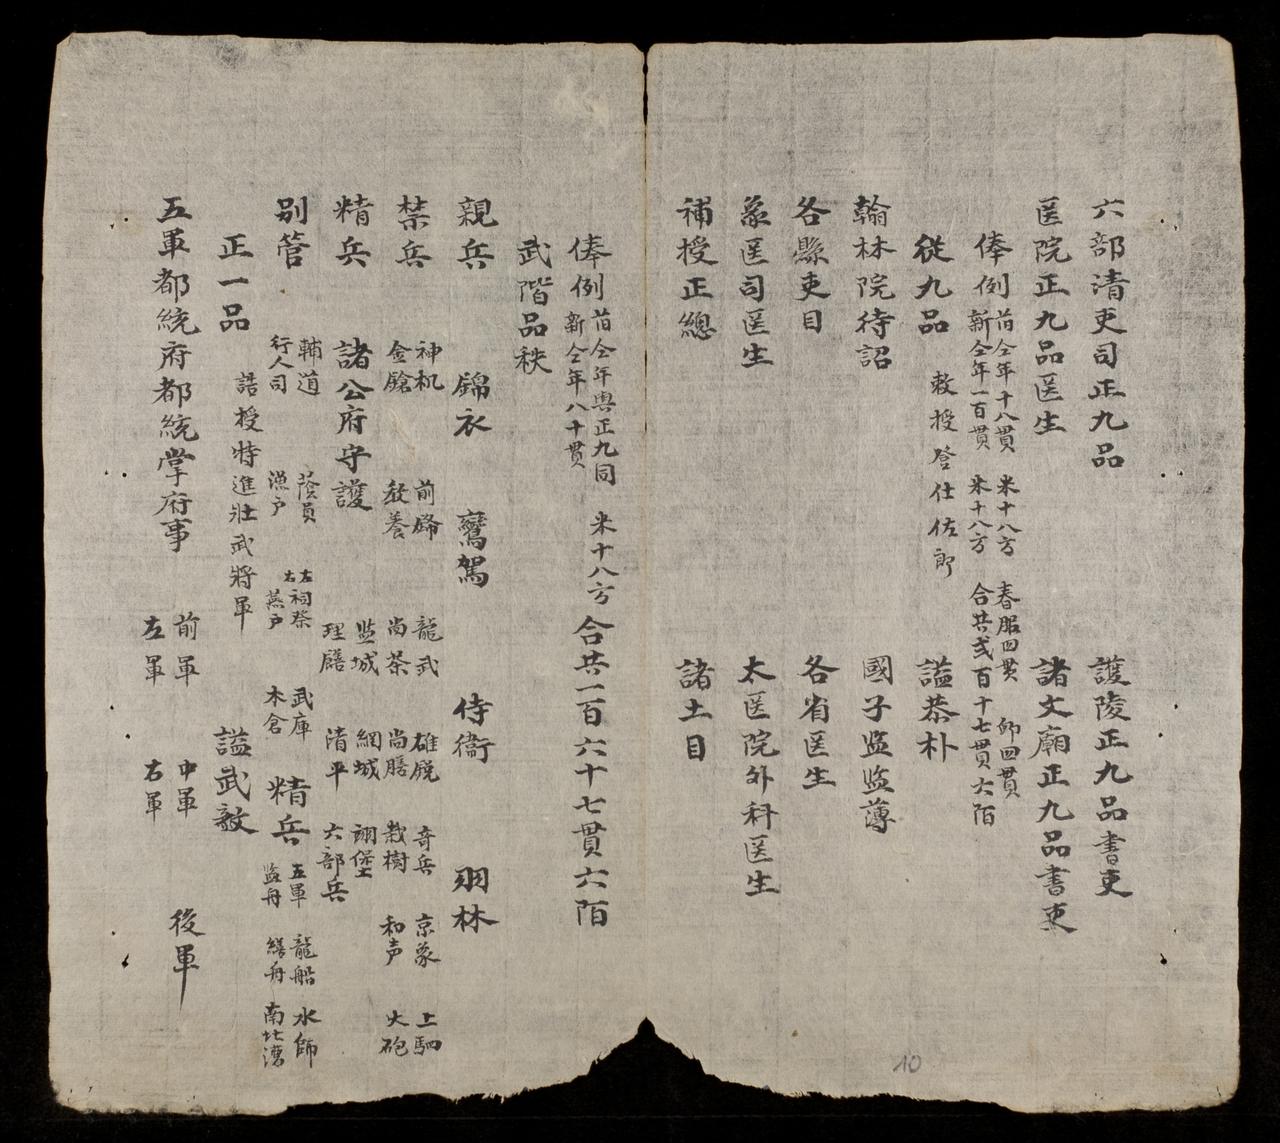 六部清吏司正九品 護陵正九品書吏
医院正九品医生 諸文廟正九品書吏
俸例 昔仝年十八貫 米十八方 春服四貫 卹四貫
新仝年一百貫 米十八方 合共弍百十七貫六陌
從九品 敕授登仕佐郎 謚恭朴
翰林院待詔 國子监监薄
各縣吏目 各省医生
象医司医生 太医院外科医生
補授正總 諸土目
俸例 昔仝年與正九同 米十八方 合共一百六十七貫六陌
新仝年八十貫
武階品秩
親兵 錦衣 鸞駕 侍衞 羽林
禁兵 神机 前鋒 龍武 雄銳 奇兵 京象 上駟
金鎗 教養 尚茶 尚膳 栽樹 和声 火砲
精兵 諸公府守護 监城 網城 翊堡
理膳 清平 六部兵
別管 輔道 蔭員 左右祠祭 武庫 精兵 五軍 龍船 水師
行人司 漁户 燕户 木倉 监舟 繕舟 南北漕
正一品 誥授特進壮武將軍 謚武毅
五軍都統府都統掌府事 前軍 中軍 後軍
左軍 右軍
10